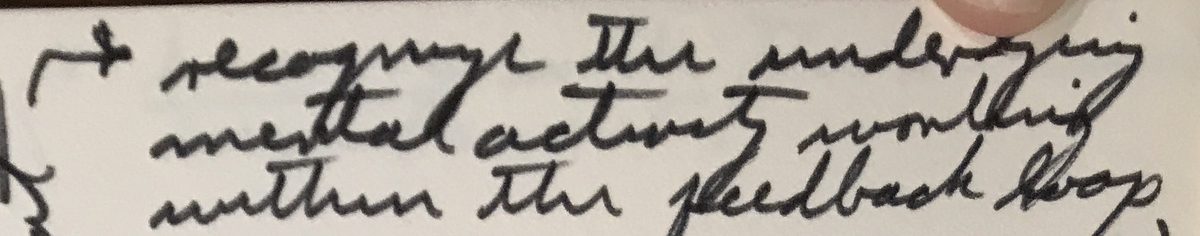 → recognize the underlying
mental activity working
within the feedback loop,